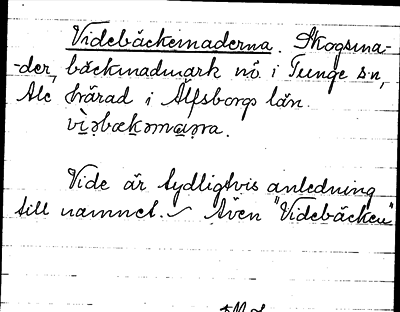 Videbäckemaderna. Skogsma-
-der, bäckmadmark nö. i Tunge sn,
Ale härad i Älfsborgs län.
vìəbækəmaəra.
Vide är tydligtvis anledning
till namnet. Även "Videbäcken"